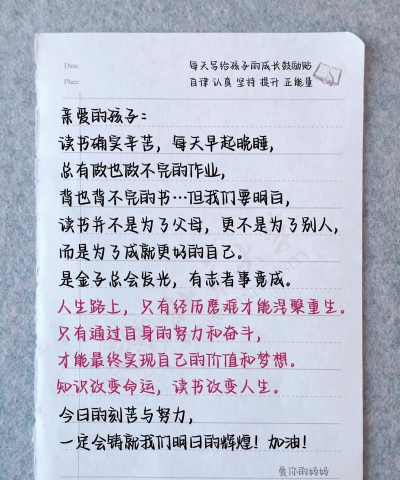 Date:
每天写给孩子的成长鼓励贴
Place:
自律 认真 坚持 提升 正能量
亲爱的孩子：
读书确实辛苦，每天早起晚睡，
总有做也做不完的作业，
背也背不完的书…但我们要明白，
读书并不是为了父母，更不是为了别人，
而是为了成就更好的自己。
是金子总会发光，有志者事竟成。
人生路上，只有经历磨难才能涅槃重生。
只有通过自身的努力和奋斗，
才能最终实现自己的价值和梦想。
知识改变命运，读书改变人生。
今日的刻苦与努力，
一定会铸就我们明日的辉煌！加油！
爱你的妈妈